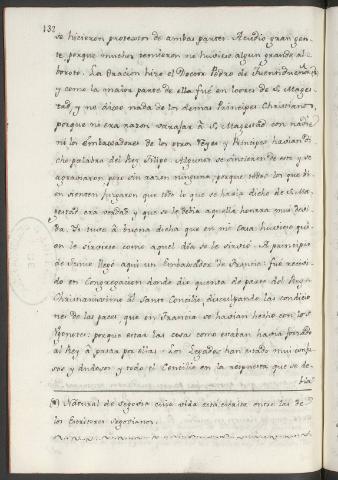 132
se hicieron protestos de ambas partes. Acudio gran gen-
te, porque muchos temieron no huviese algun grande al-
boroto. La Oracion hizo el Doctor Pedro de Fuentidueña (*)
y como la maior parte de ella fué en loores de S. Mages-
tad, y no dixo nada de los demas Principes Christianos,
porque no era razon a S. Magestad con nadie
ni los Embaxadores de los otros Reyes y Principes havian di-
cho palabra del Rey Filipo. Algunos se sintieron de esto y se
agraviaron, pero sin razon ninguna, porque todos los que bi-
en sienten juzgaron que todo lo que se havia dicho de S. Ma-
gestad era verdad y que se le debia aquella honrra mui devi-
da. Yo tuve á buena dicha que en mi casa huviese qui-
en le sirviese como aquel dia se le sirvió. A principio
de Junio llegó aqui un Embaxador de Francia: fué recivi-
do en Congregacion donde dio quenta de parte del Rey
Christianissimo al Santo Concilio, disculpando las condicio-
nes de las paces, que en Francia se havian hecho con los V-
gonotes: porque estar las cosas como estaban havia forzado
al Rey á pasar por ellas. Los Legados han estado mui confu-
sos, y dudosos y todo el Concilio en la respuesta que se de-
bia
(*) Natural de Segovia cuia vida está escrita entre las de
los Escritores Segovianos.